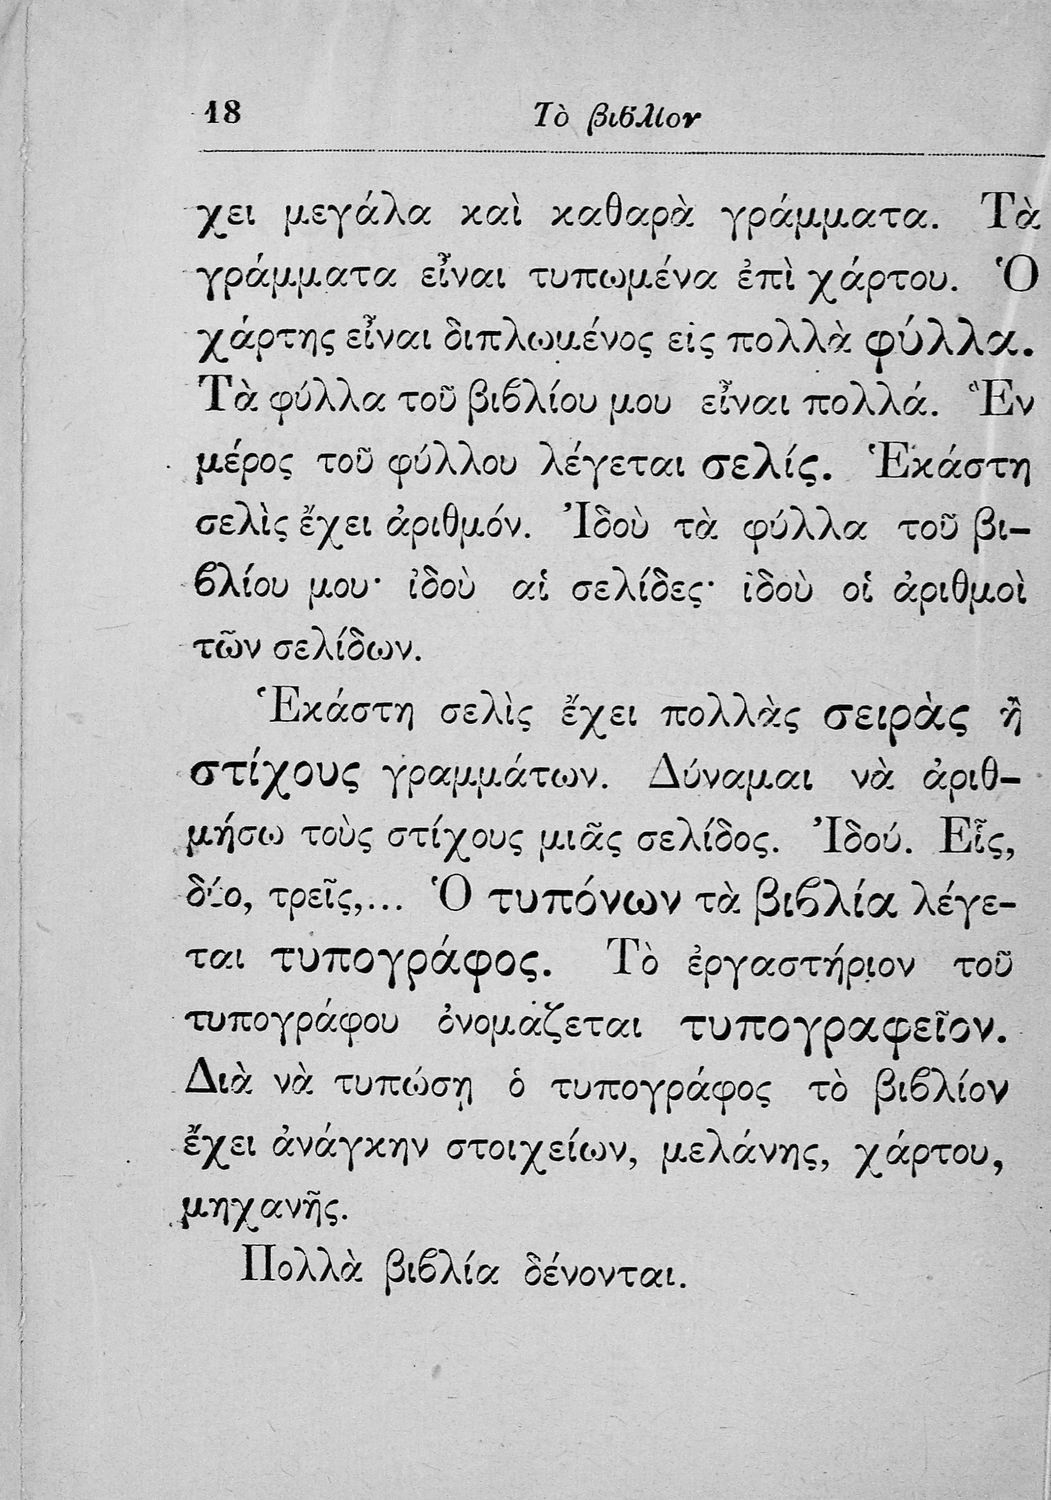 18 Τὸ βιϐλίον
χει μεγάλα καὶ καθαρὰ γράμματα. Τὰ
γράμματα εἶναι τυπωμένα ἐπὶ χάρτου. Ὁ
χάρτης εἶναι διπλωμένος εἰς πολλὰ φύλλα.
Τὰ φύλλα τοῦ βιϐλίου μου εἶναι πολλά. Ἓν
μέρος τοῦ φύλλου λέγεται σελίς. Ἑκάστη
σελὶς ἔχει ἀριθμόν. Ἰδοὺ τὰ φύλλα τοῦ βι-
ϐλίου μου· ἰδοὺ αἱ σελίδες· ἰδοὺ οἱ ἀριθμοὶ
τῶν σελίδων.
Ἑκάστη σελὶς ἔχει πολλὰς σειρὰς ἢ
στίχους γραμμάτων. Δύναμαι νὰ ἀριθ-
μήσω τοὺς στίχους μιᾶς σελίδος. Ἰδού. Εἷς,
δύο, τρεῖς,... Ὁ τυπόνων τὰ βιϐλία λέγε-
ται τυπογράφος. Τὸ ἐργαστήριον τοῦ
τυπογράφου ὀνομάζεται τυπογραφεῖον.
Διὰ νὰ τυπώσῃ ὁ τυπογράφος τὸ βιϐλίον
ἔχει ἀνάγκην στοιχείων, μελάνης, χάρτου,
μηχανῆς.
Πολλὰ βιϐλία δένονται.